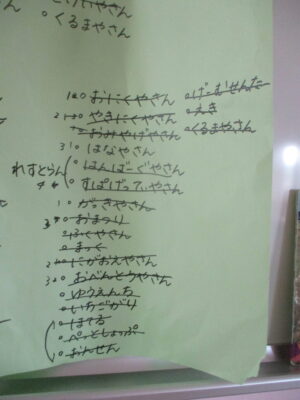 。くるまやさん
1。おにくやさん 。げーむせんたー
2。やきにくやさん 。えき
。おみやげやさん 。くるまやさん
3。はなやさん
れすとらん 。はんばーぐやさん
。すぱげってぃやさん
1。がっきやさん
。おまつり
。ふくやさん
。まっく
2。にがおえやさん
3。おべんとうやさん
。ゆうえんち
。いちごがり
。ほてる
。ぺっとしょっぷ
。おんせん